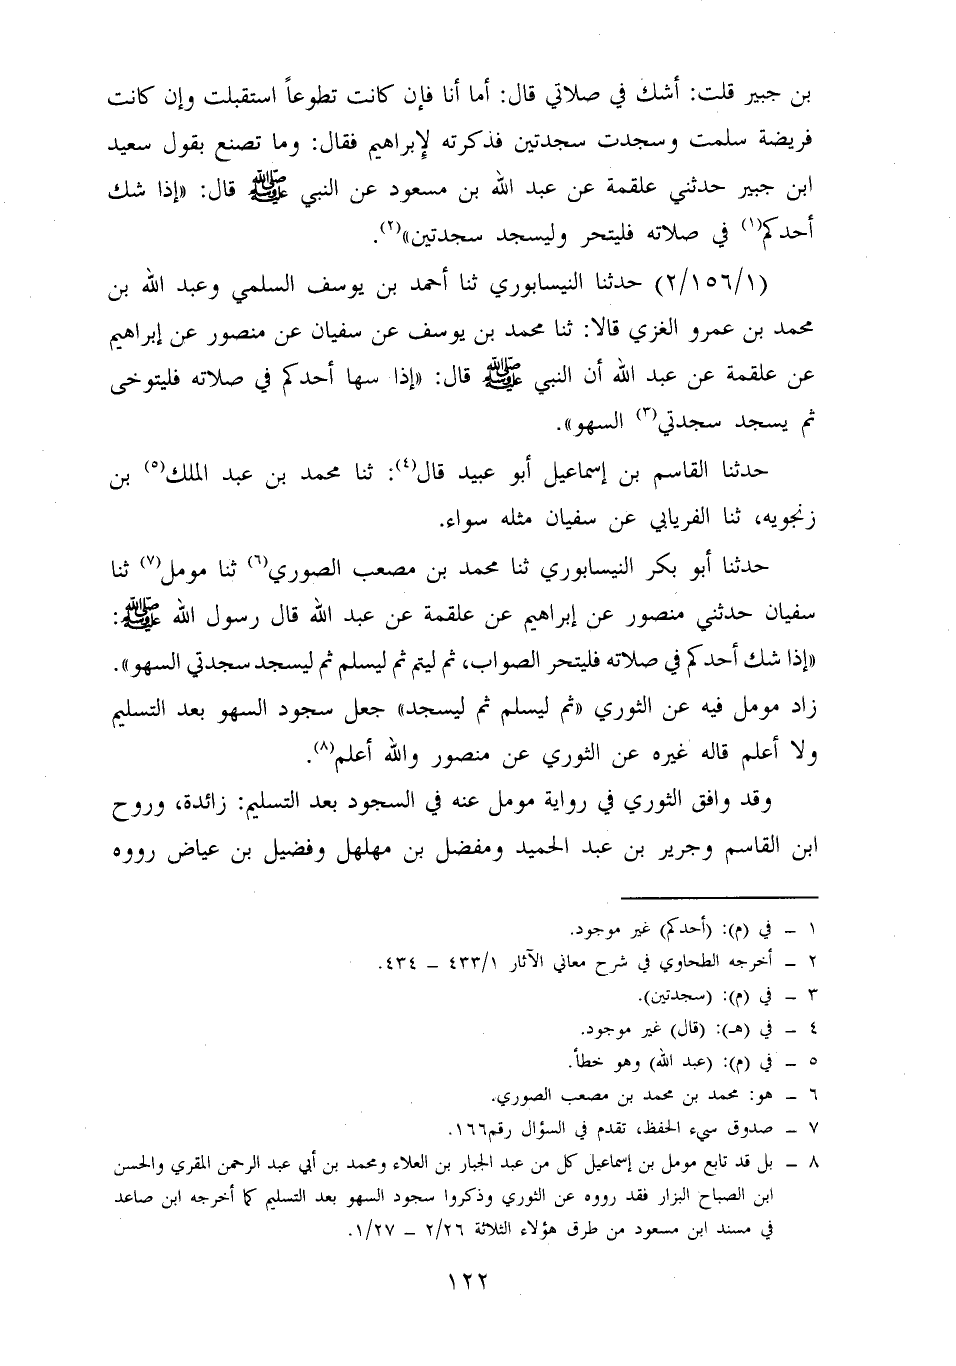 بن جبير قلت: أشك في صلاتي قال: أما أنا فإن كانت تطوعاً استقبلت وإن كانت
فريضة سلمت وسجدت سجدتين فذكرته لإبراهيم فقال: وما تصنع بقول سعيد
ابن جبير حدثني علقمة عن عبد الله بن مسعود عن النبي ﷺ قال: «إذا شك
أحدكم(١) في صلاته فليتحر وليسجد سجدتين»(٢).
(٢/١٥٦/١) حدثنا النيسابوري ثنا أحمد بن يوسف السلمي وعبد الله بن
محمد بن عمرو الغزي قالا: ثنا محمد بن يوسف عن سفيان عن منصور عن إبراهيم
عن علقمة عن عبد الله أن النبي ﷺ قال: «إذا سها أحدكم في صلاته فليتوخى
ثم يسجد سجدتي(٣) السهو».
حدثنا القاسم بن إسماعيل أبو عبيد قال(٤): ثنا محمد بن عبد الملك(٥) بن
زنجويه، ثنا الفريابي عن سفيان مثله سواء.
حدثنا أبو بكر النيسابوري ثنا محمد بن مصعب الصوري(٦) ثنا مومل(٧) ثنا
سفيان حدثني منصور عن إبراهيم عن علقمة عن عبد الله قال رسول الله ﷺ:
«إذا شك أحدكم في صلاته فليتحر الصواب، ثم ليتم ثم ليسلم ثم ليسجد سجدتي السهو».
زاد مومل فيه عن الثوري «ثم ليسلم ثم ليسجد» جعل سجود السهو بعد التسليم
ولا أعلم قاله غيره عن الثوري عن منصور والله أعلم(٨).
وقد وافق الثوري في رواية مومل عنه في السجود بعد التسليم: زائدة، وروح
ابن القاسم وجرير بن عبد الحميد ومفضل بن مهلهل وفضيل بن عياض رووه
١ – في (م): (أحدكم) غير موجود.
٢ – أخرجه الطحاوي في شرح معاني الآثار ٤٣٣/١ – ٤٣٤.
٣ – في (م): (سجدتين).
٤ – في (هـ): (قال) غير موجود.
٥ – في (م): (عبد الله) وهو خطأ.
٦ – هو: محمد بن محمد بن مصعب الصوري.
٧ – صدوق سيء الحفظ، تقدم في السؤال رقم١٦٦.
٨ – بل قد تابع مومل بن إسماعيل كل من عبد الجبار بن العلاء ومحمد بن أبي عبد الرحمن المقري والحسن
ابن الصباح البزار فقد رووه عن الثوري وذكروا سجود السهو بعد التسليم كما أخرجه ابن صاعد
في مسند ابن مسعود من طرق هؤلاء الثلاثة ٢/٢٦ – ١/٢٧.
١٢٢